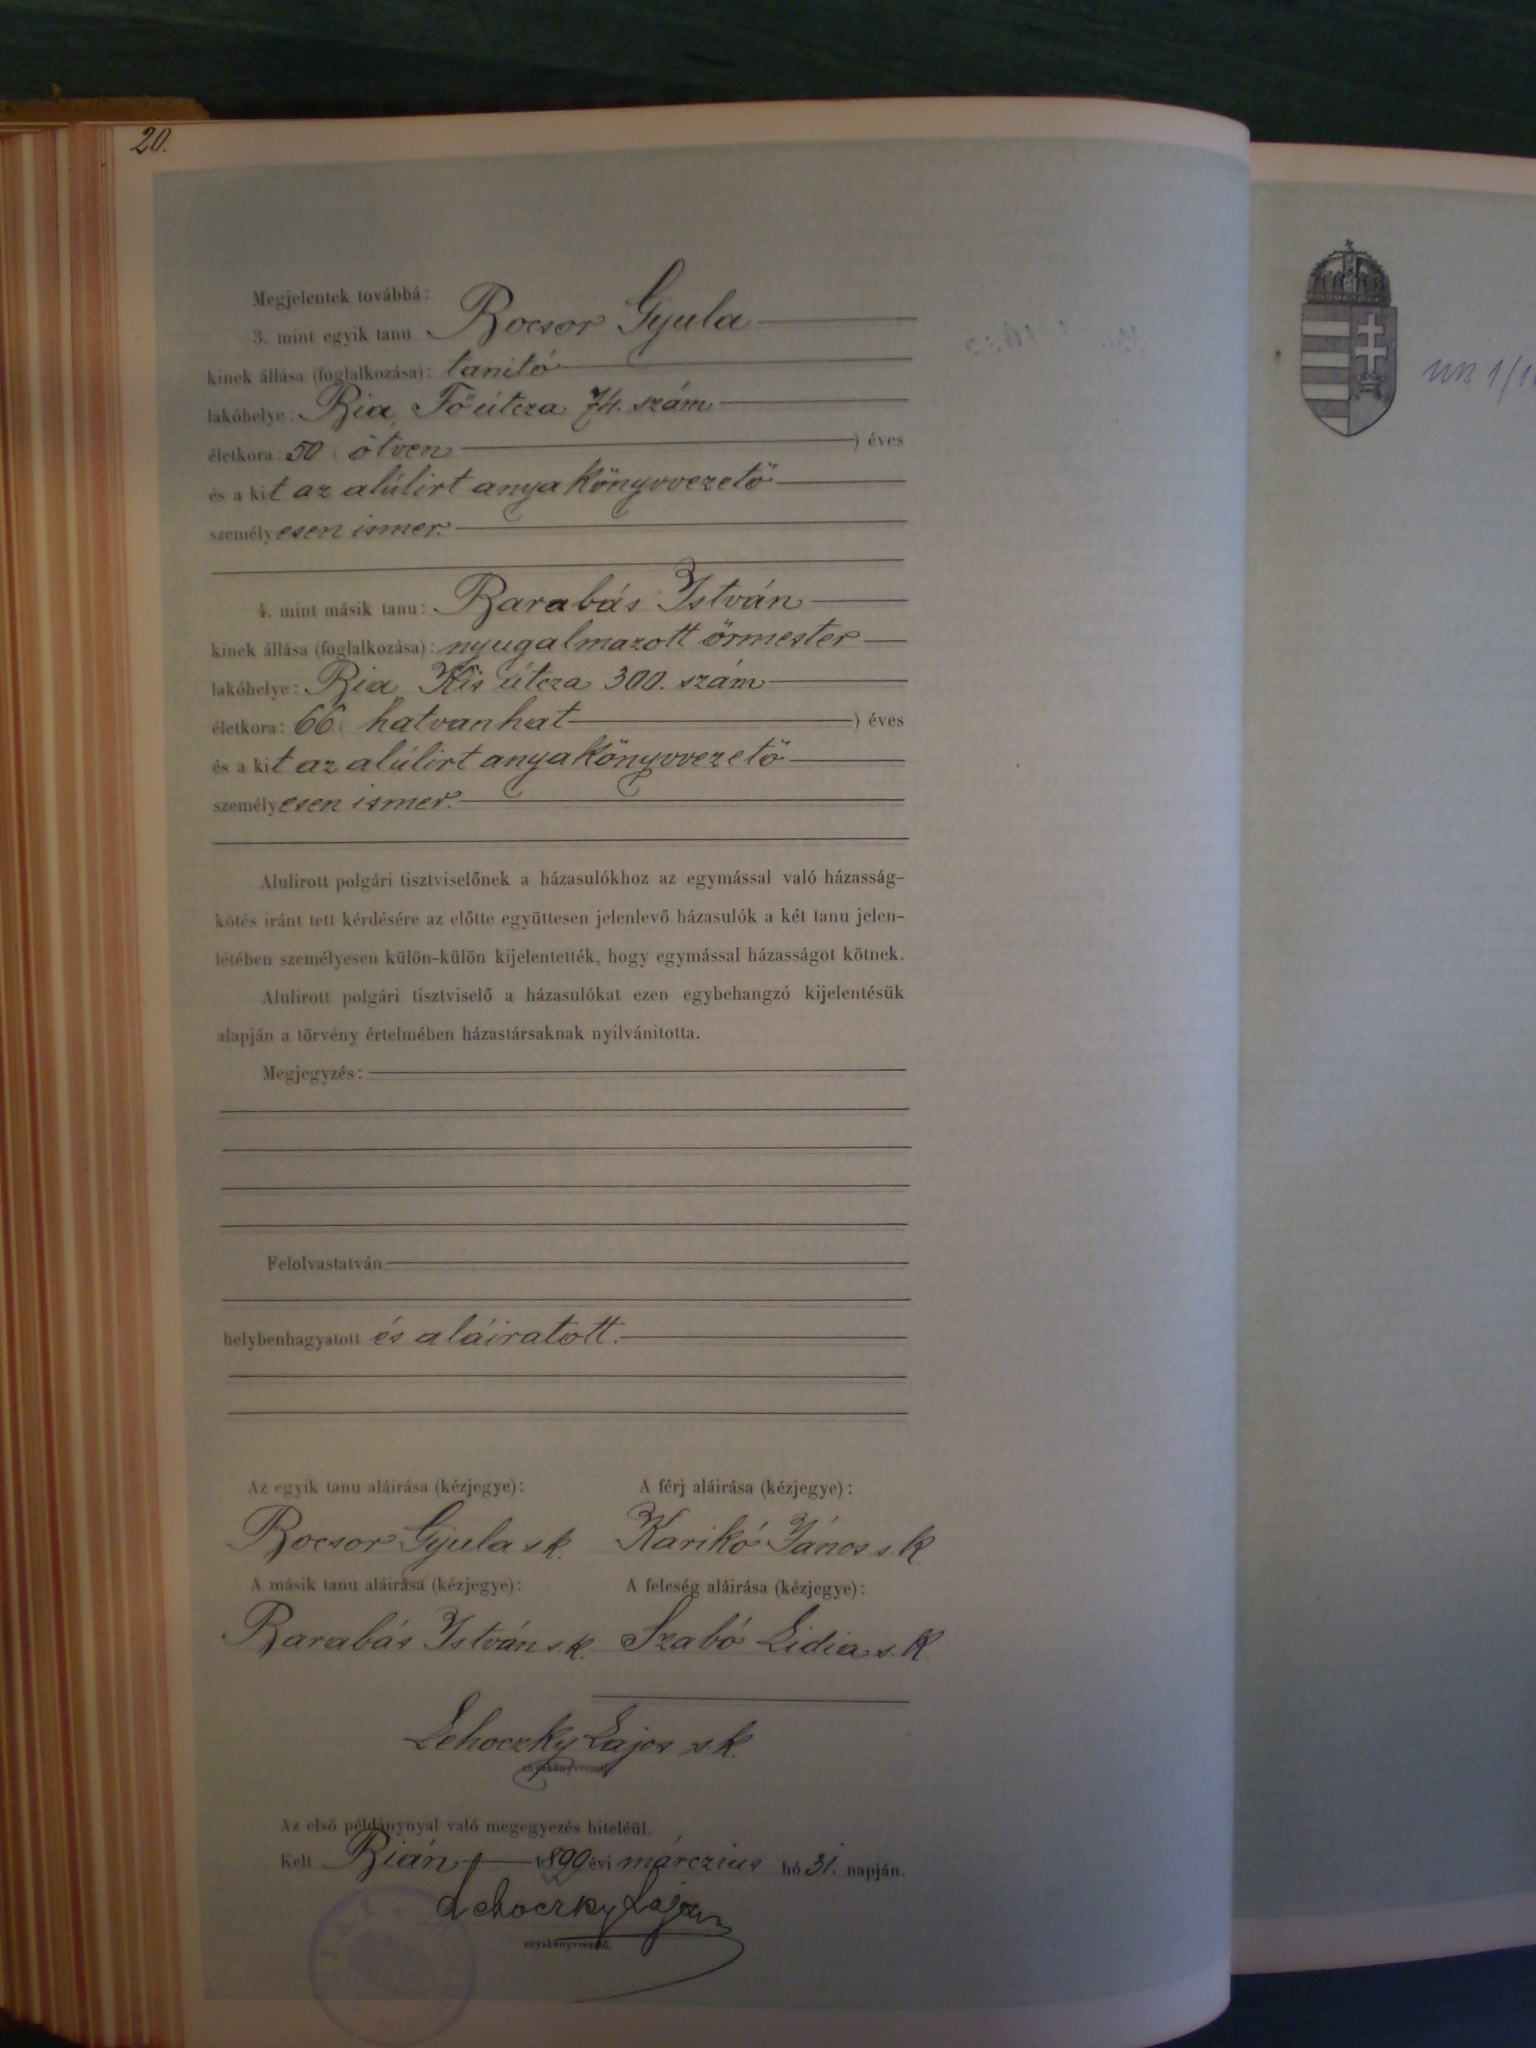 20.
Megjelentek továbbá:
3. mint egyik tanu Bocsor Gyula
kinek állása (foglalkozása): tanitó
lakóhelye: Bia, Főútcza 74. szám
életkora: 50 (ötven) éves
és a kit az alúlirt anyakönyvvezető
személyesen ismer.
4. mint másik tanu: Barabás István
kinek állása (foglalkozása): nyugalmazott őrmester
lakóhelye: Bia, Kis útcza 300. szám
életkora: 66 (hatvanhat) éves
és a kit az alúlirt anyakönyvvezető
személyesen ismer.
Alulirott polgári tisztviselőnek a házasulókhoz az egymással való házasság-
kötés iránt tett kérdésére az előtte együttesen jelenlevő házasulók a két tanu jelen-
létében személyesen külön-külön kijelentették, hogy egymással házasságot kötnek.
Alulirott polgári tisztviselő a házasulókat ezen egybehangzó kijelentésük
alapján a törvény értelmében házastársaknak nyilvánitotta.
Megjegyzés:
Felolvastatván
helybenhagyatott és aláiratott.
Az egyik tanu aláirása (kézjegye): A férj aláirása (kézjegye):
Bocsor Gyula s.k. Karikó János s.k.
A másik tanu aláirása (kézjegye): A feleség aláirása (kézjegye):
Barabás István s.k. Szabó Lidia s.k.
Lehoczky Lajos s.k.
anyakönyvvezető.
Az első példánynyal való megegyezés hiteléül.
Kelt Bián 1899 évi márczius hó 31. napján.
Lehoczky Lajos
anyakönyvvezető.